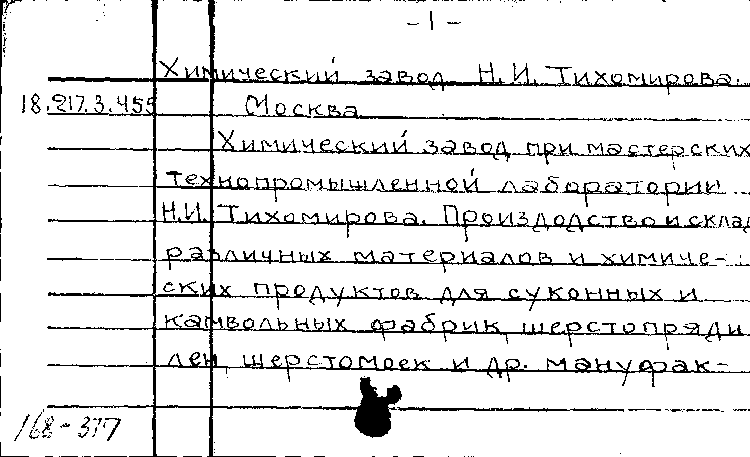 -1-
Химический завод Н.И. Тихомирова.
18.217.3.455 Москва
Химический завод при мастерских
технопромышленной лаборатории
Н.И. Тихомирова. Производство и склад
различных материалов и химиче-
ских продуктов для суконных и
камвольных фабрик, шерстопряди
лен, шерстомоек и др. мануфак-
168-377